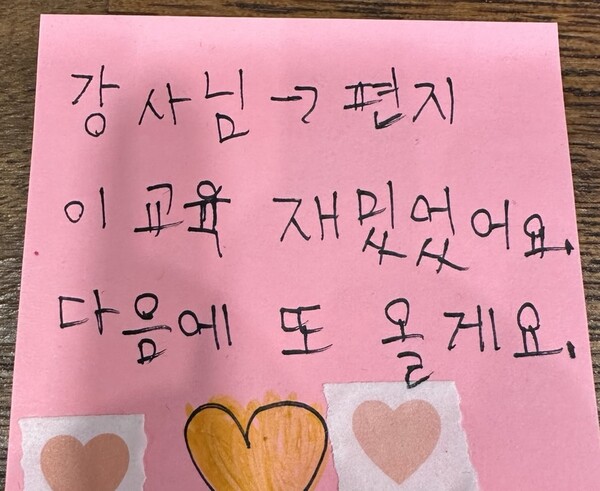 강사님 → 편지
이 교육 재밌었어요.
다음에 또 올게요.